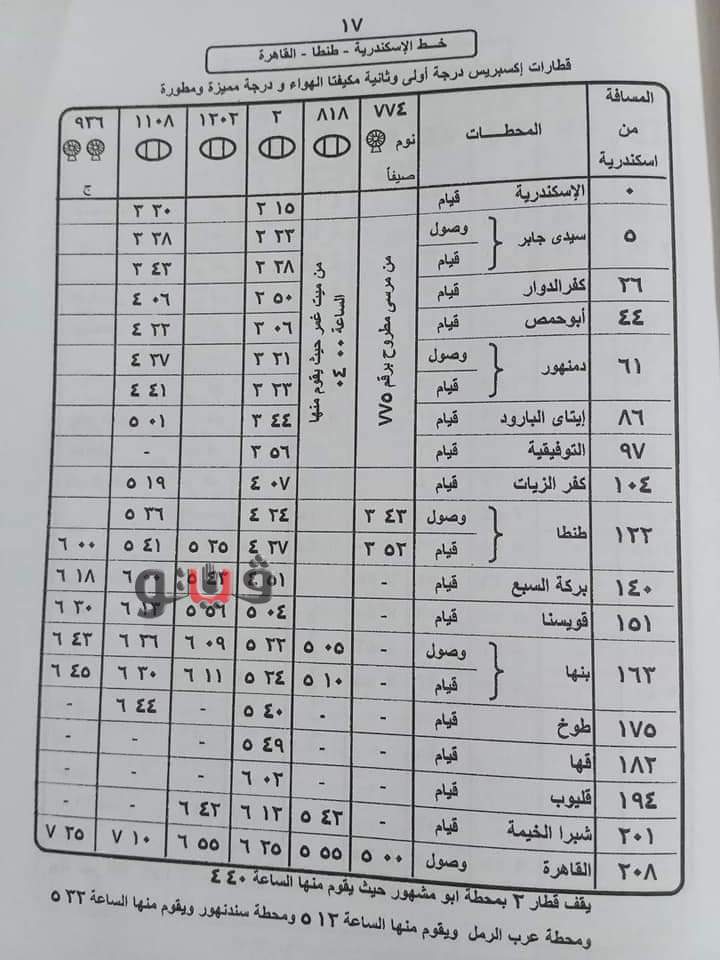 ١٧
خط الإسكندرية - طنطا - القاهرة
قطارات إكسبريس درجة أولى وثانية مكيفتا الهواء و درجة مميزة ومطورة
المسافة من اسكندرية المحطات ٧٧٤ نوم صيفاً ٨١٨ ٢ ١٢٠٢ ١١٠٨ ٩٣٦ ج
٠ الإسكندرية قيام ٢ ١٥ ٣ ٣٠
٥ سيدى جابر وصول ٢ ٢٣ ٣ ٣٨
قيام ٢ ٢٨ ٣ ٤٣
٢٦ كفر الدوار قيام ٢ ٥٠ ٤ ٠٦
٤٤ أبو حمص قيام ٣ ٠٦ ٤ ٢٢
٦١ دمنهور وصول ٣ ٢١ ٤ ٣٧
قيام ٣ ٢٣ ٤ ٤١
٨٦ إيتاى البارود قيام ٣ ٤٤ ٥ ٠١
٩٧ التوفيقية قيام ٣ ٥٦ -
١٠٤ كفر الزيات قيام ٤ ٠٧ ٥ ١٩
من مرسى مطروح برقم ٧٧٥
من ميت غمر حيث يقوم منها
الساعة ٠٠ ٠٤
١٢٢ طنطا وصول ٣ ٤٣ ٤ ٢٤ ٥ ٣٦
قيام ٣ ٥٢ ٤ ٢٧ ٥ ٢٥ ٥ ٤١ ٦ ٠٠
١٤٠ بركة السبع قيام - ٥١ ٦ ١٨
١٥١ قويسنا قيام - ٥ ٠٤ ٥ ٥٦ ٦ ١٣ ٦ ٣٠
١٦٣ بنها وصول - ٥ ٠٥ ٥ ٢٢ ٦ ٠٩ ٦ ٢٦ ٦ ٤٣
قيام - ٥ ١٠ ٥ ٢٤ ٦ ١١ ٦ ٣٠ ٦ ٤٥
١٧٥ طوخ قيام - - ٥ ٤٠ - ٦ ٤٤ -
١٨٢ قها قيام - - ٥ ٤٩ - - -
١٩٤ قليوب قيام - - ٦ ٠٢ - - -
٢٠١ شبرا الخيمة قيام - ٥ ٤٢ ٦ ١٢ ٦ ٤٢ - -
٢٠٨ القاهرة وصول ٥ ٠٠ ٥ ٥٥ ٦ ٢٥ ٦ ٥٥ ٧ ١٠ ٧ ٢٥
يقف قطار ٢ بمحطة ابو مشهور حيث يقوم منها الساعة ٤٠ ٤
ومحطة عرب الرمل ويقوم منها الساعة ١٢ ٥ ومحطة سندنهور ويقوم منها الساعة ٣٢ ٥
ڤيتو